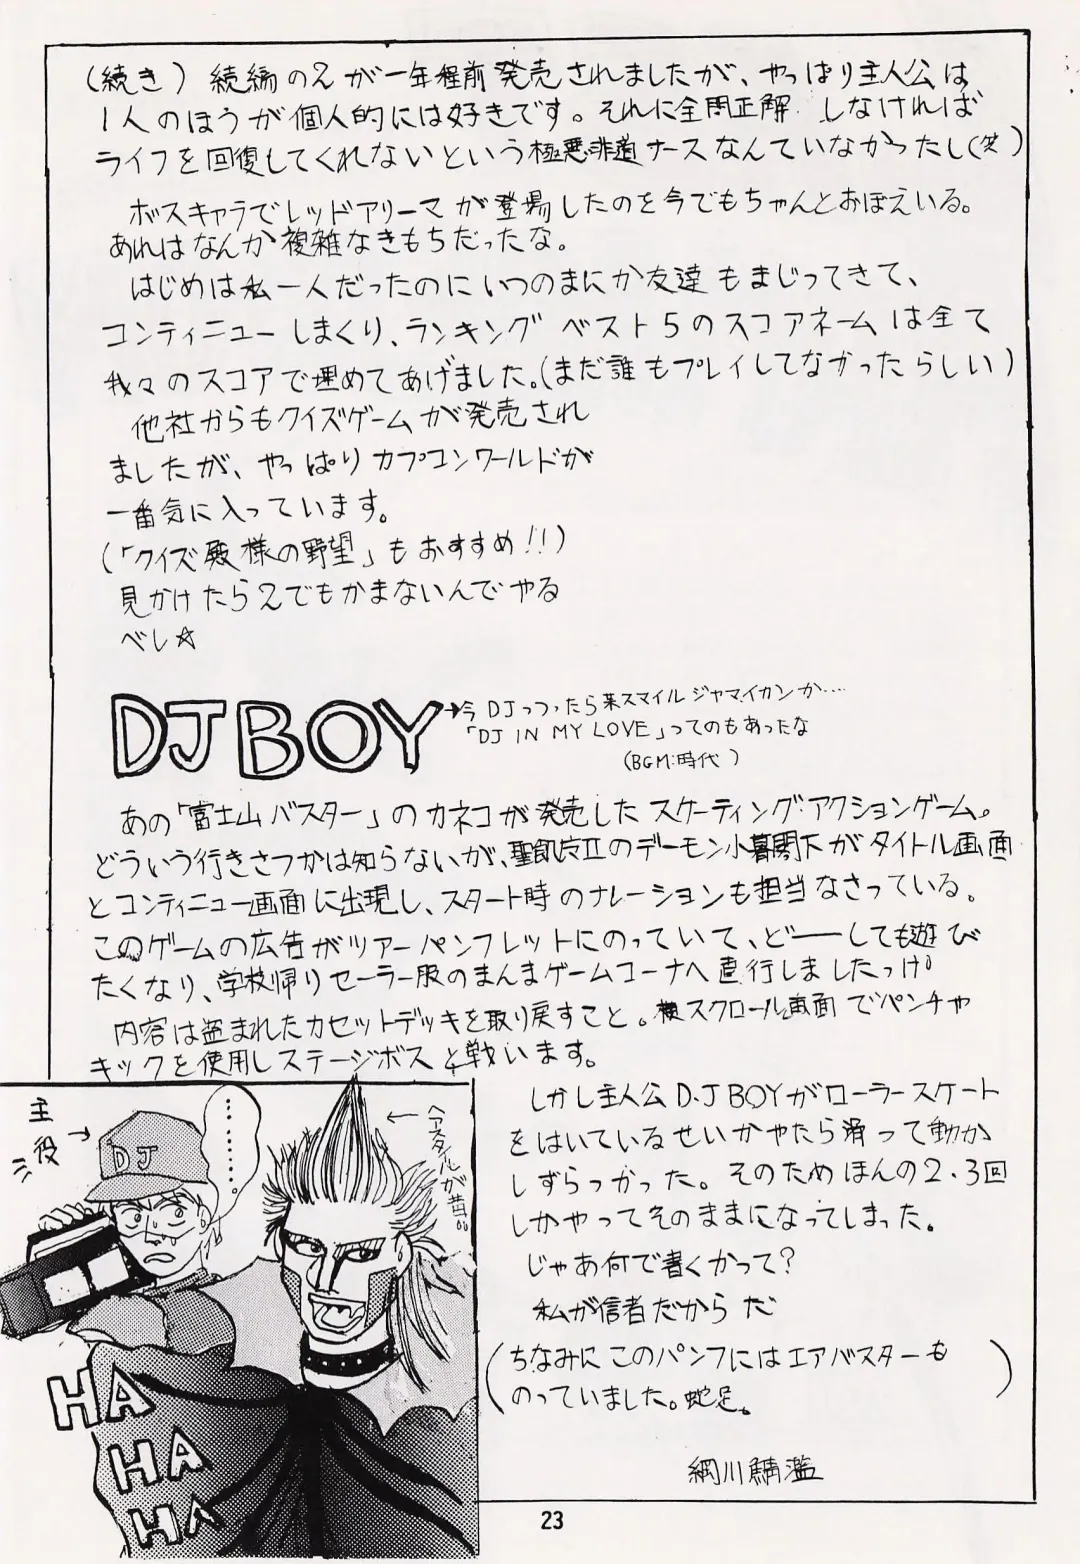 （続き） 続編の2が一年程前発売されましたが、やっぱり主人公は
1人のほうが個人的には好きです。それに全問正解 しなければ
ライフを回復してくれないという極悪非道ナースなんていなかったし(笑)
ボスキャラでレッドアリーマが登場したのを今でもちゃんとおぼえいる。
あれはなんか複雑なきもちだったな。
はじめは私一人だったのにいつのまにか友達もまじってきて、
コンティニューしまくり、ランキングベスト5のスコアネームは全て
我々のスコアで埋めてあげました。(まだ誰もプレイしてなかったらしい)
他社からもクイズゲームが発売され
ましたが、やっぱりカプコンワールドが
一番気に入っています。
(「クイズ殿様の野望」もおすすめ!!)
見かけたら2でもかまないんでやる
べし☆
DJ BOY→今DJっつったら来スマイルジャマイカンか‥‥
「DJ IN MY LOVE」ってのもあったな
(BGM:時代)
あの「富士山バスター」のカネコが発売したスケーティング・アクションゲーム。
どういう行きさつかは知らないが、聖飢魔IIのデーモン小暮閣下がタイトル画面
とコンティニュー画面に出現し、スタート時のナレーションも担当なさっている。
このゲームの広告がツアーパンフレットにのっていて、どーーしても遊び
たくなり、学校帰りセーラー服のまんまゲームコーナへ直行しましたっけ。
内容は盗まれたカセットデッキを取り戻すこと。横スクロール画面でパンチや
キックを使用しステージボスと戦います。
しかし主人公D・J BOYがローラースケート
をはいているせいかやたら滑って動か
しずらっかった。そのためほんの2・3回
しかやってそのままになってしまった。
じゃあ何で書くかって?
私が信者だからだ
(ちなみにこのパンフにはエアバスターも
のっていました。蛇足。)
網川鯖濫
主役→
DJ
‥‥‥‥。
←ヘアスタイルが昔。。
HA
HA
HA
23